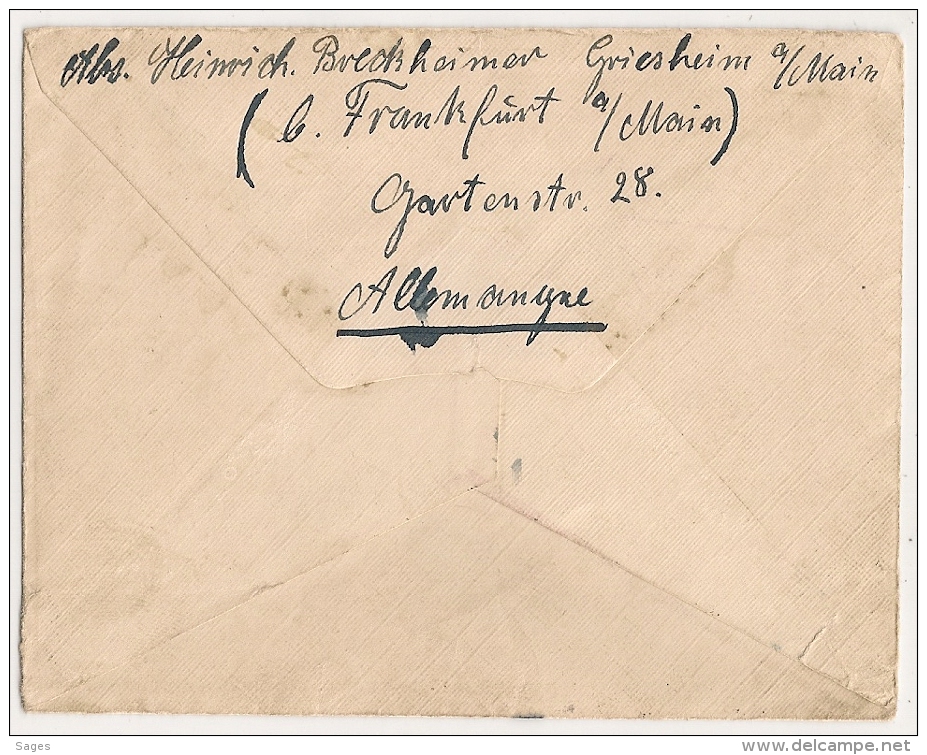 Abs. Heinrich. Breckheimer Griesheim a/Main
(b. Frankfurt a/Main)
Gartenstr. 28.
Allemangne
Sages
www.delcampe.net